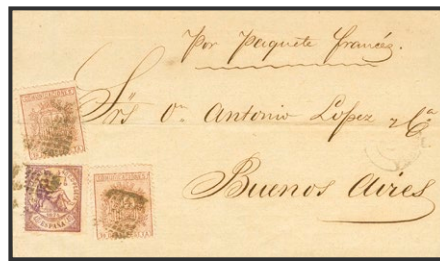 Por Paquete francés.
Srs Dn Antonio Lopez y Cª
Buenos Aires
ESPAÑA